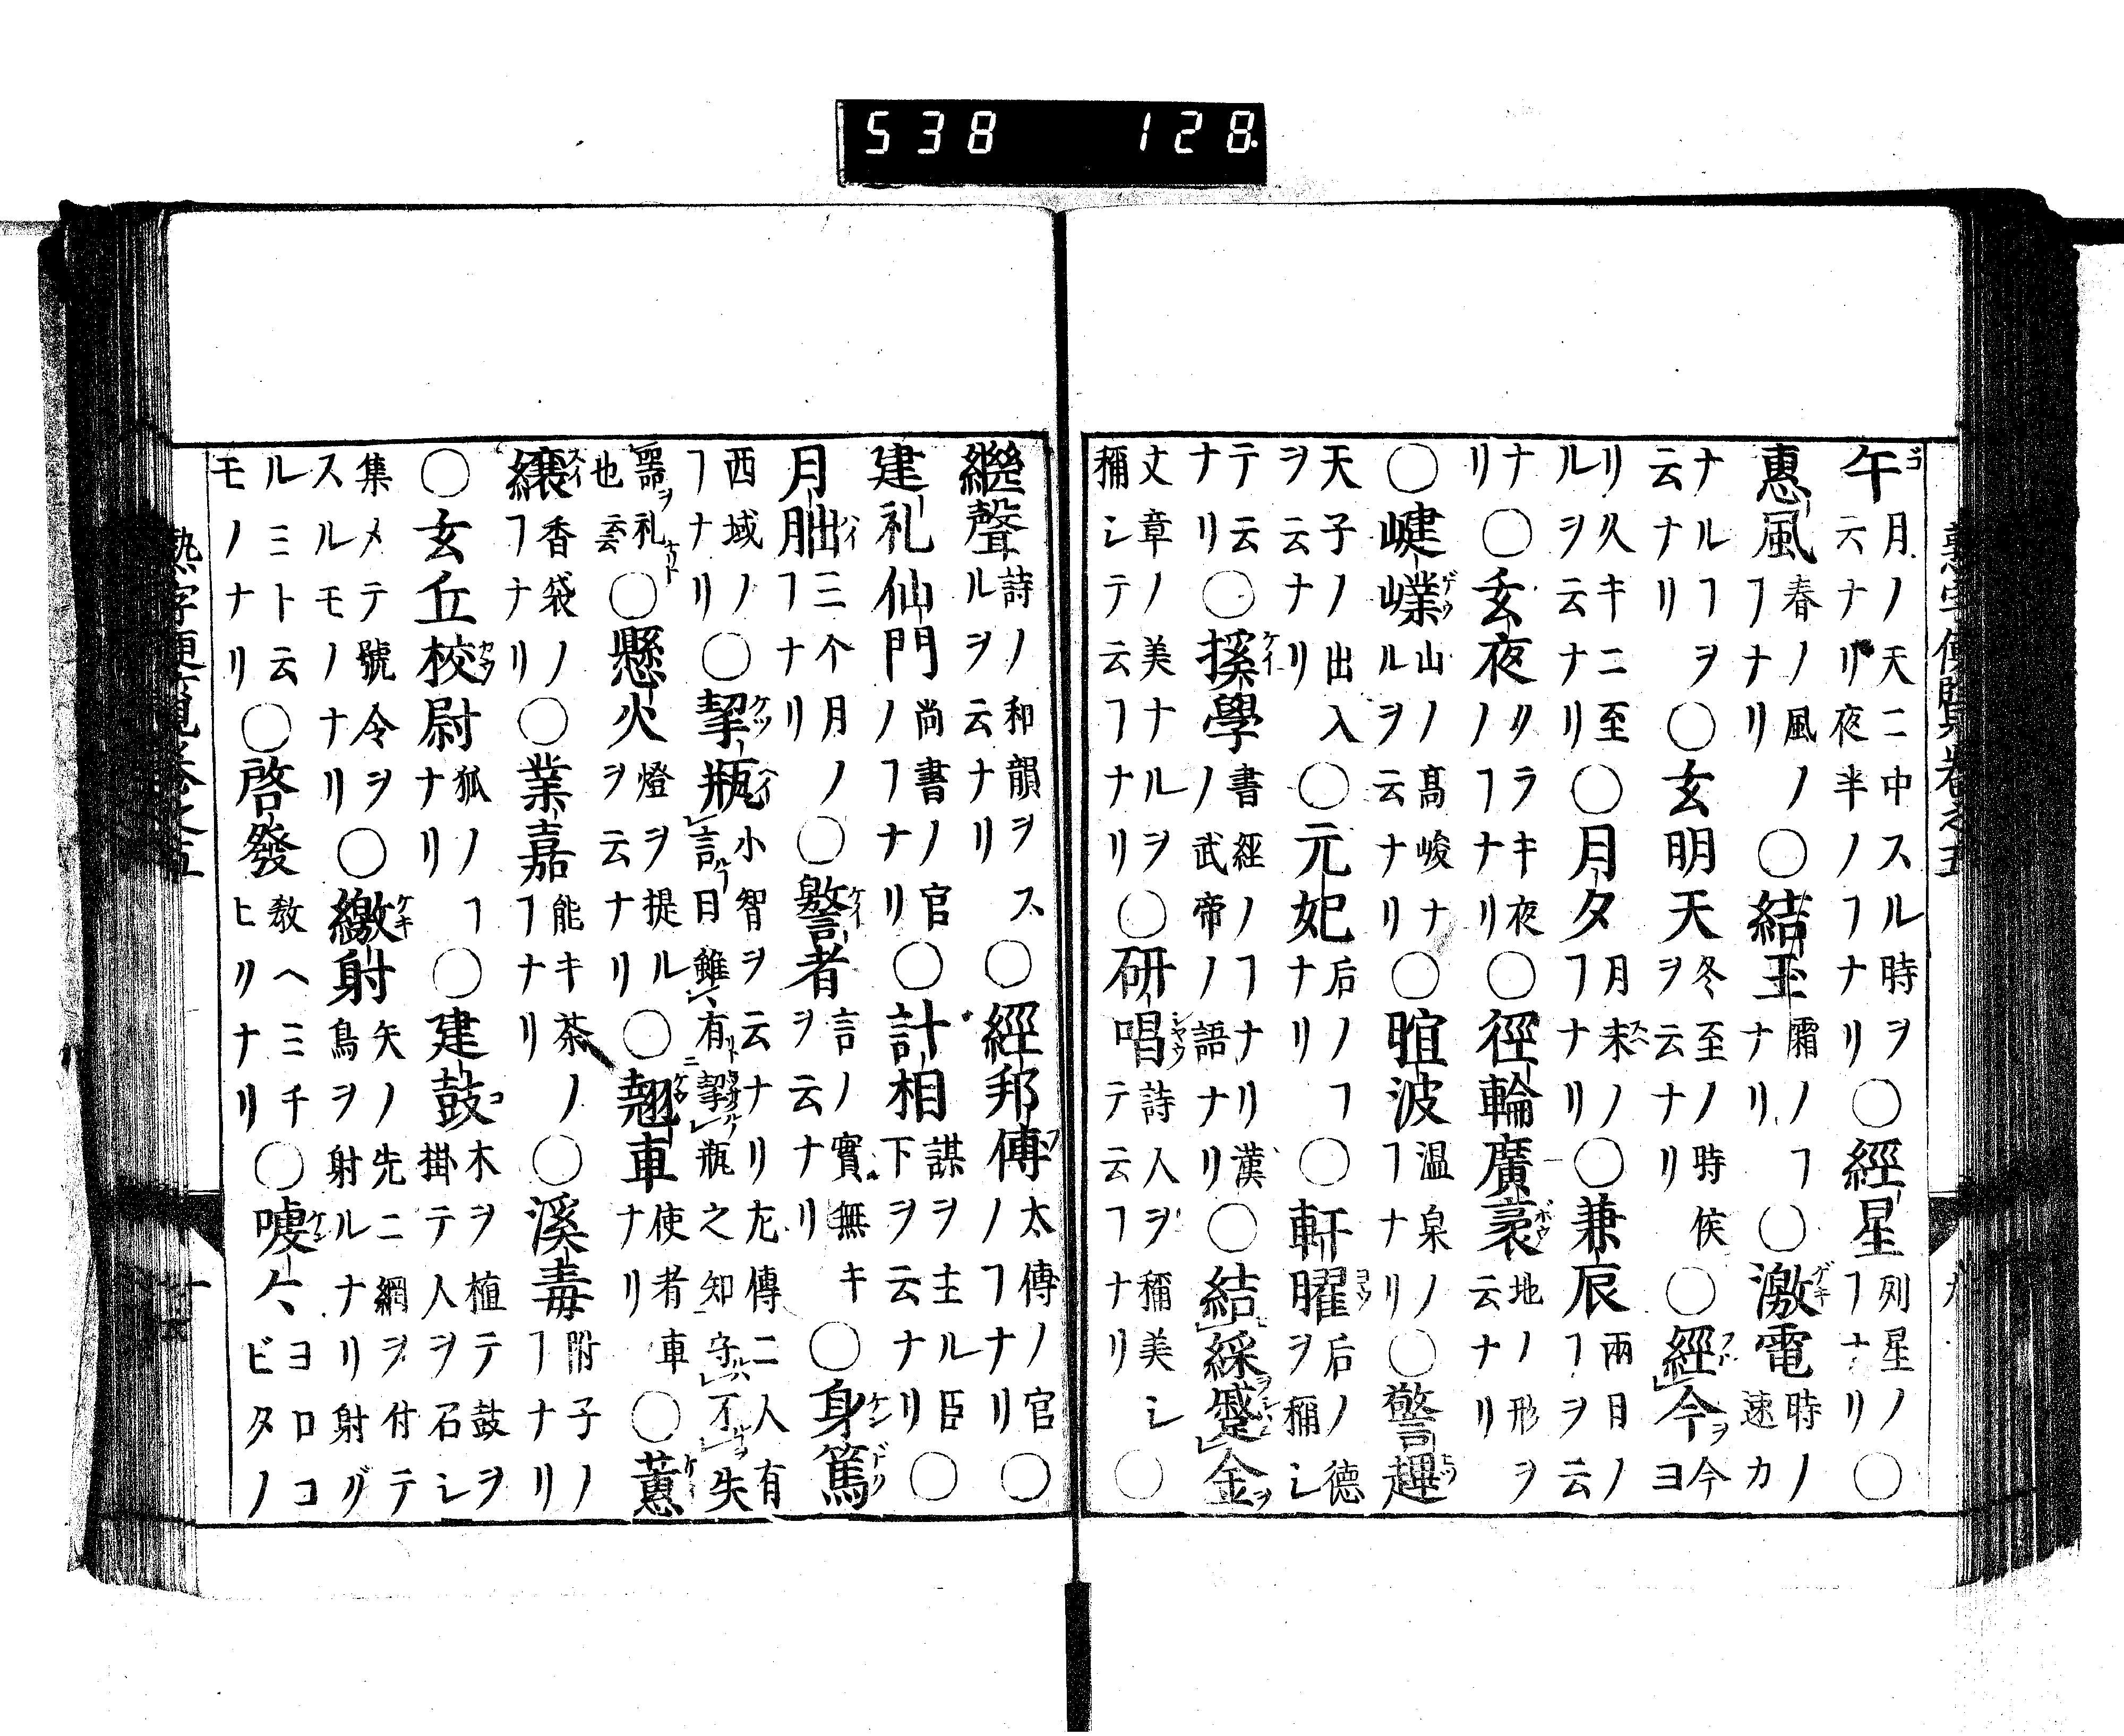 538 128
午月ノ天ニ中スル時ヲ云ナリ夜半ノフナリ○經星列星ノフナリ○
惠風春ノ風ノフナリ○結玉霜ノフナリ○激電時ノ速カ
ナルフヲ云ナリ○玄明天冬至ノ時候ヲ云ナリ○經今今ヨ
リ久キニ至ルヲ云ナリ○月夕月末ノフナリ○兼辰兩日ノフヲ云
ナリ○玄夜クラキ夜ノフナリ○徑輪廣袤地ノ形ヲ云ナリ
○嵥山ノ髙峻ナルヲ云ナリ○暄波温泉ノフナリ○警蹕
天子ノ出入ヲ云ナリ○元妃后ノフナリ○軒曜后ノ德ヲ稱シ
テ云ナリ○學書經ノフナリ漢ノ武帝ノ語ナリ○結綵蹙金
文章ノ美ナルヲ稱シテ云フナリ○研唱詩人ヲ稱美シテ云フナリ○
繼聲詩ノ和韻ヲスルヲ云ナリ○經邦傅太傅ノ官ノフナリ○
建礼仙門尚書ノ官ノフナリ○計相謀ヲ主ル臣下ヲ云ナリ○
月朏三个月ノフナリ○者言ノ實無キヲ云ナリ○身篤
西域ノフナリ○挈瓶小智ヲ云ナリ左傳ニ人有言曰雖有挈瓶之知守不失
器礼也云云○懸火燈ヲ提ルヲ云ナリ○翹車使者車ナリ○蕙
纕香袋ノフナリ○業嘉能キ茶ノフナリ○溪毒附子ノフナリ
○玄丘校尉狐ノフナリ○建鼓木ヲ植テ鼓ヲ掛テ人ヲ石シ
集メテ號令ヲスルモノナリ○繳射矢ノ先ニ網ヲ付テ鳥ヲ射ルナリ射グ
ルミト云モノナリ○啓發敎ヘミチヒリナリ○ヨロコビタノ
熟字便覧卷之五